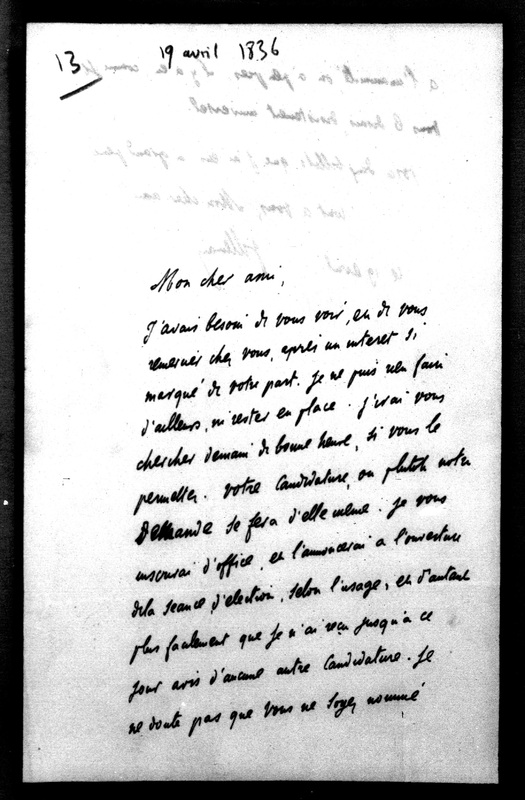 13
19 avril 1836
Mon cher ami,
J'avais besoin de vous voir, et de vous
remercier chez vous, après un interet si
marqué de votre part. Je ne puis rien faire
d'ailleurs, ni rester en place. J'irai vous
chercher demain de bonne heure, si vous le
permettez. Votre Candidature, ou plutôt notre
Demande se fera d'elle même. Je vous
inscrirai d'office, et l'annoncerai a l'ouverture
dela seance d'election, selon l'usage, et d'autant
plus facilement que je n'ai reçu jusqu'à ce
jour avis d'aucune autre Candidature. Je
ne doute pas que vous ne soyez nommé